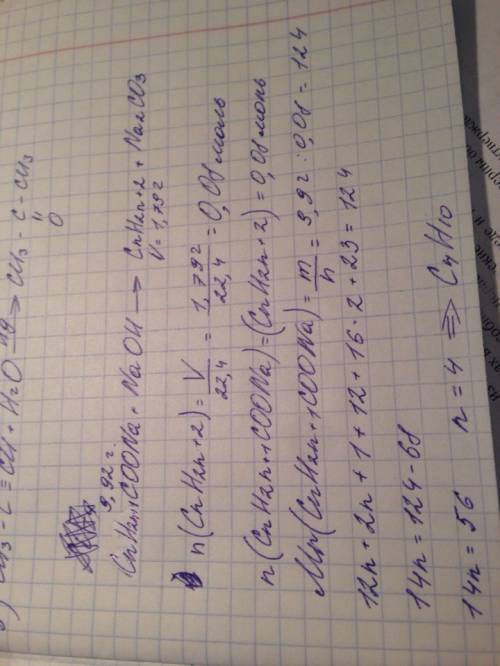 CH3-C≡CH+H2O Hg→ CH3-C-CH3
||
O
9,92 г.
CnH2n+1COONa + NaOH → CnH2n+2 + Na2CO3
V = 1,792
n(CnH2n+2) = V/22,4 = 1,792/22,4 = 0,08 моль
n(CnH2n+1COONa) = (CnH2n+2) = 0,08 моль
Mr(CnH2n+1COONa) = m/n = 9,92 : 0,08 = 124
12n + 2n + 1 + 12 + 16·2 + 23 = 124
14n = 124-68
14n = 56 n = 4 => C4H10